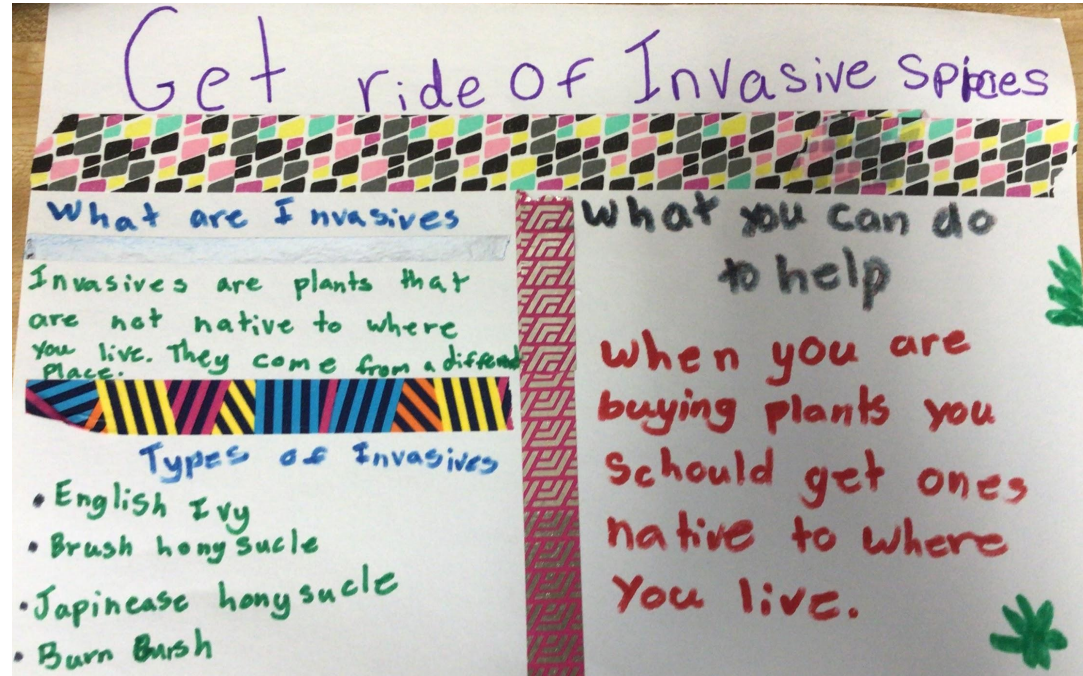 Get ride of Invasive Spices
What are Invasives
Invasives are plants that
are not native to where
you live. They come from a different
Place.
Types of Invasives
• English Ivy
• Brush honysucle
• Japinease honysucle
• Burn Bursh
What you can do
to help
When you are
buying plants you
Schould get ones
native to where
You live.